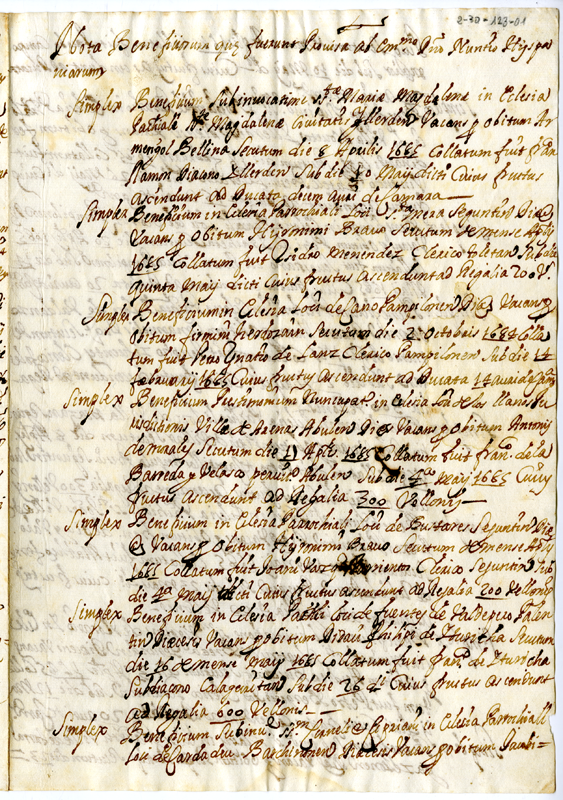 2-30-123-01
Nota Beneficiorum quæ fuerunt Provisa ab Emmo Dno Nuntio Hyspa
niarum
Simplex Beneficium Subinvocatione Stæ Mariæ Magdalenæ in Eclesia
Magdalenæ Civitatis Yllerden Vacans p obitum Ar
mengol Bellina Secutum die 8 Aprilis 1685 Collatum fuit fran
Ramon Diacono Yllerden Sub die 10 Maij dicti Cuius fructus
ascendunt ad Ducata decem auri de Camara
Simplex Beneficium in Eclesia Parrochiali Loci Seguntin Dies
Vacans p obitum Hyeronimi Bravo Secutum de mense Aprilis
1685 Collatum fuit Isidro Menendez Clerico toletan Subdie
quinta Maij dicti Cuius fructus Ascendunt ad Regalia 200 V.
Simplex Beneficium in Eclesia Loci de Sano Pampilonen Dies Vacans p
obitum firmini Secutum die 2 Octobris 1684 Colla
tum fuit Petro Ygnatio de Sanz Clerico Pampilonen Sub die 14
februarij 1685 Cuius fructus Ascendunt ad Ducata 14 auri de Cam
Simplex Beneficium Prestimonium Nuncupat in Eclesia Loci de las Llanas Ju
risditionis Villæ de Arenas Abulen Dies Vacans p obitum Antonij
de morales Secutum die 11 Aprs 1685 Collatum fuit fran de la
Barreda y Velasco Abulen Sub die 4a Maij 1685 Cuius
fructus Ascendunt ad Regalia 300 Vellonis
Simplex Beneficium in Eclesia Parrochiali Loci de Bustares Seguntin Die
Vacans p obitum Hyeronimi Bravo Secutum de mense Aprilis
1685 Collatum fuit Joani Clerico Seguntin Sub
die 4a Maij dicti Cuius fructus ascendunt ad Regalia 200 Vellonis
Simplex Beneficium in Eclesia Loci de fuentes de Valdepero Palen
tin Diocesis Vacans p obitum Didaci Philipi de Ituricha Secutum
die 16 de mense Maij 1685 Collatum fuit fran de Ituricha
Subdiacono Calagurritan Sub die 26 di Cuius fructus ascendunt
ad Regalia 600 Vellonis
Simplex Beneficium Subinve SSm Cornelij & Cipriani in Eclesia Parrochiali
Loci de Cardadeu Barchinonen Diocesis Vacans p obitum Jacobi=